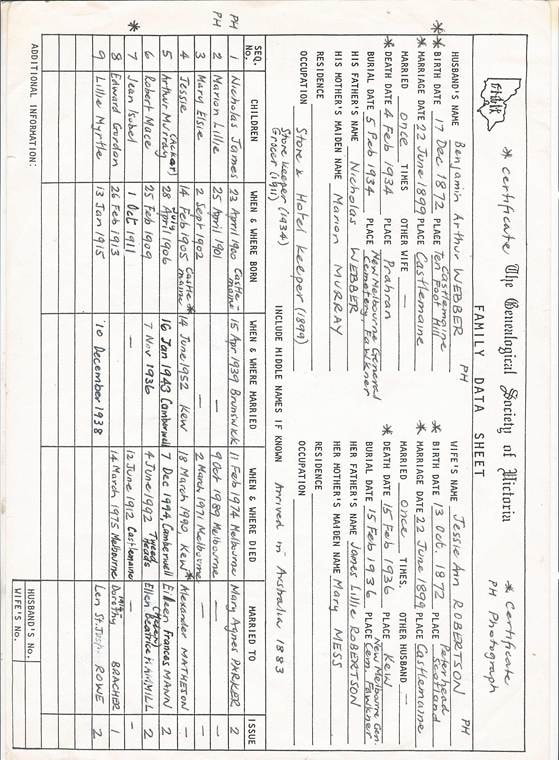 * certificate The Genealogical Society of Victoria * Certificate
PH Photograph
FAMILY DATA SHEET
HUSBAND'S NAME Benjamin Arthur WEBBER PH
* BIRTH DATE 17 Dec 1872 PLACE Castlemaine Ten Foot Hill
* MARRIAGE DATE 22 June 1899 PLACE Castlemaine
MARRIED once TIMES OTHER WIFE —
* DEATH DATE 4 Feb 1934 PLACE Prahran
BURIAL DATE 5 Feb 1934 PLACE New Melbourne General Cemetery, Fawkner
HIS FATHER'S NAME Nicholas WEBBER
HIS MOTHER'S MAIDEN NAME Marion MURRAY
RESIDENCE
OCCUPATION Store & Hotel Keeper (1899)
Store Keeper (1934)
Grocer (1911)
WIFE'S NAME Jessie Ann ROBERTSON PH
* BIRTH DATE 13 Oct. 1872 PLACE Peterhead Scotland
* MARRIAGE DATE 22 June 1899 PLACE Castlemaine
MARRIED once TIMES. OTHER HUSBAND —
* DEATH DATE 15 Feb 1936 PLACE Kew
BURIAL DATE 15 Feb 1936 PLACE New Melbourne Gen. Cem. Fawkner
HER FATHER'S NAME James Lillie ROBERTSON
HER MOTHER'S MAIDEN NAME Mary MESS
RESIDENCE
OCCUPATION
INCLUDE MIDDLE NAMES IF KNOWN Arrived in Australia 1883
SEQ. No. CHILDREN WHEN & WHERE BORN WHEN & WHERE MARRIED WHEN & WHERE DIED MARRIED TO ISSUE
PH 1 Nicholas James 23 April 1900 Castlemaine 15 Apr 1939 Brunswick 11 Feb 1974 Melbourne Mary Agnes PARKER 2
PH 2 Marion Lillie 25 April 1901 — 9 Oct 1989 Melbourne — —
3 Mary Elsie 2 Sept 1902 — 2 March 1971 Melbourne — —
4 Jessie 14 Feb 1905 Castlemaine * 14 June 1952 Kew 18 March 1990 Kew * Alexander MATHESON —
5 Arthur Murray 28 July 1906 16 Jan 1943 Camberwell 7 Dec 1994 Camberwell Eileen Frances MANN 2
6 Robert Mace 25 Feb 1909 7 Nov 1936 4 June 1992 Tweed Heads Ellen Beatrice 2
* 7 Jean Isobel 1 Oct 1911 — 12 June 1912 Castlemaine — —
8 Edward Gordon 26 Feb 1913 14 March 1975 Melbourne Dorothy BRACHER 1
9 Lillie Myrtle 13 Jan 1915 10 December 1938 Len ROWE 2
ADDITIONAL INFORMATION:
HUSBAND'S No.
WIFE'S No.